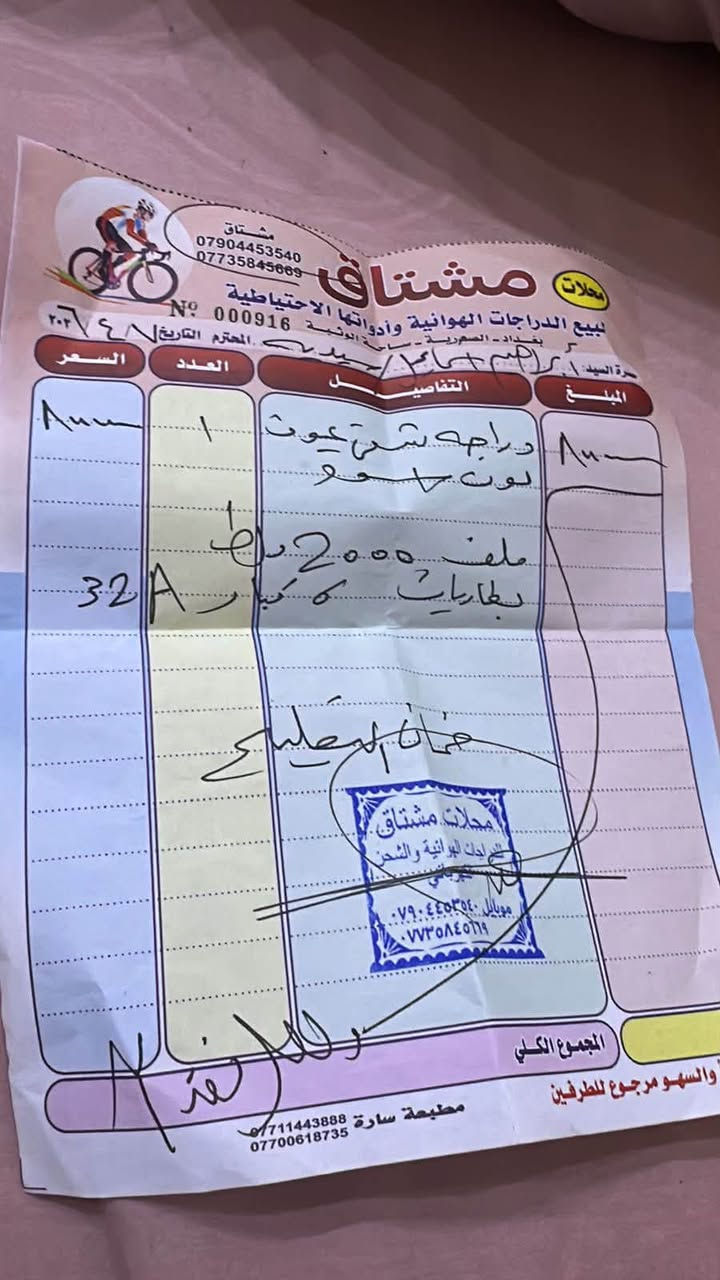 محلات
مشتاق
مشتاق
07904453540
07735845669
لبيع الدراجات الهوائية وأدواتها الاحتياطية
بغداد - الصدرية - ساحة الوثبة
Nº 000916
حضرة السيد: ابراهيم المحترم
التاريخ ٨ / ٤ / ٢٠٢٦
المبلغ التفاصيـــل العدد السعر
دراجه شحن ١
لون اسود
ملف 2000 واط
بطاريات ٥ كبار 32A
ضمان التصليح
محلات مشتاق
للدراجات الهوائية والشحن
موبايل ٠٧٩٠٤٤٥٣٥٤٠
٠٧٧٣٥٨٤٥٦٦٩
المجموع الكلي
والسهو مرجوع للطرفين
مطبعة سارة 07711443888
07700618735